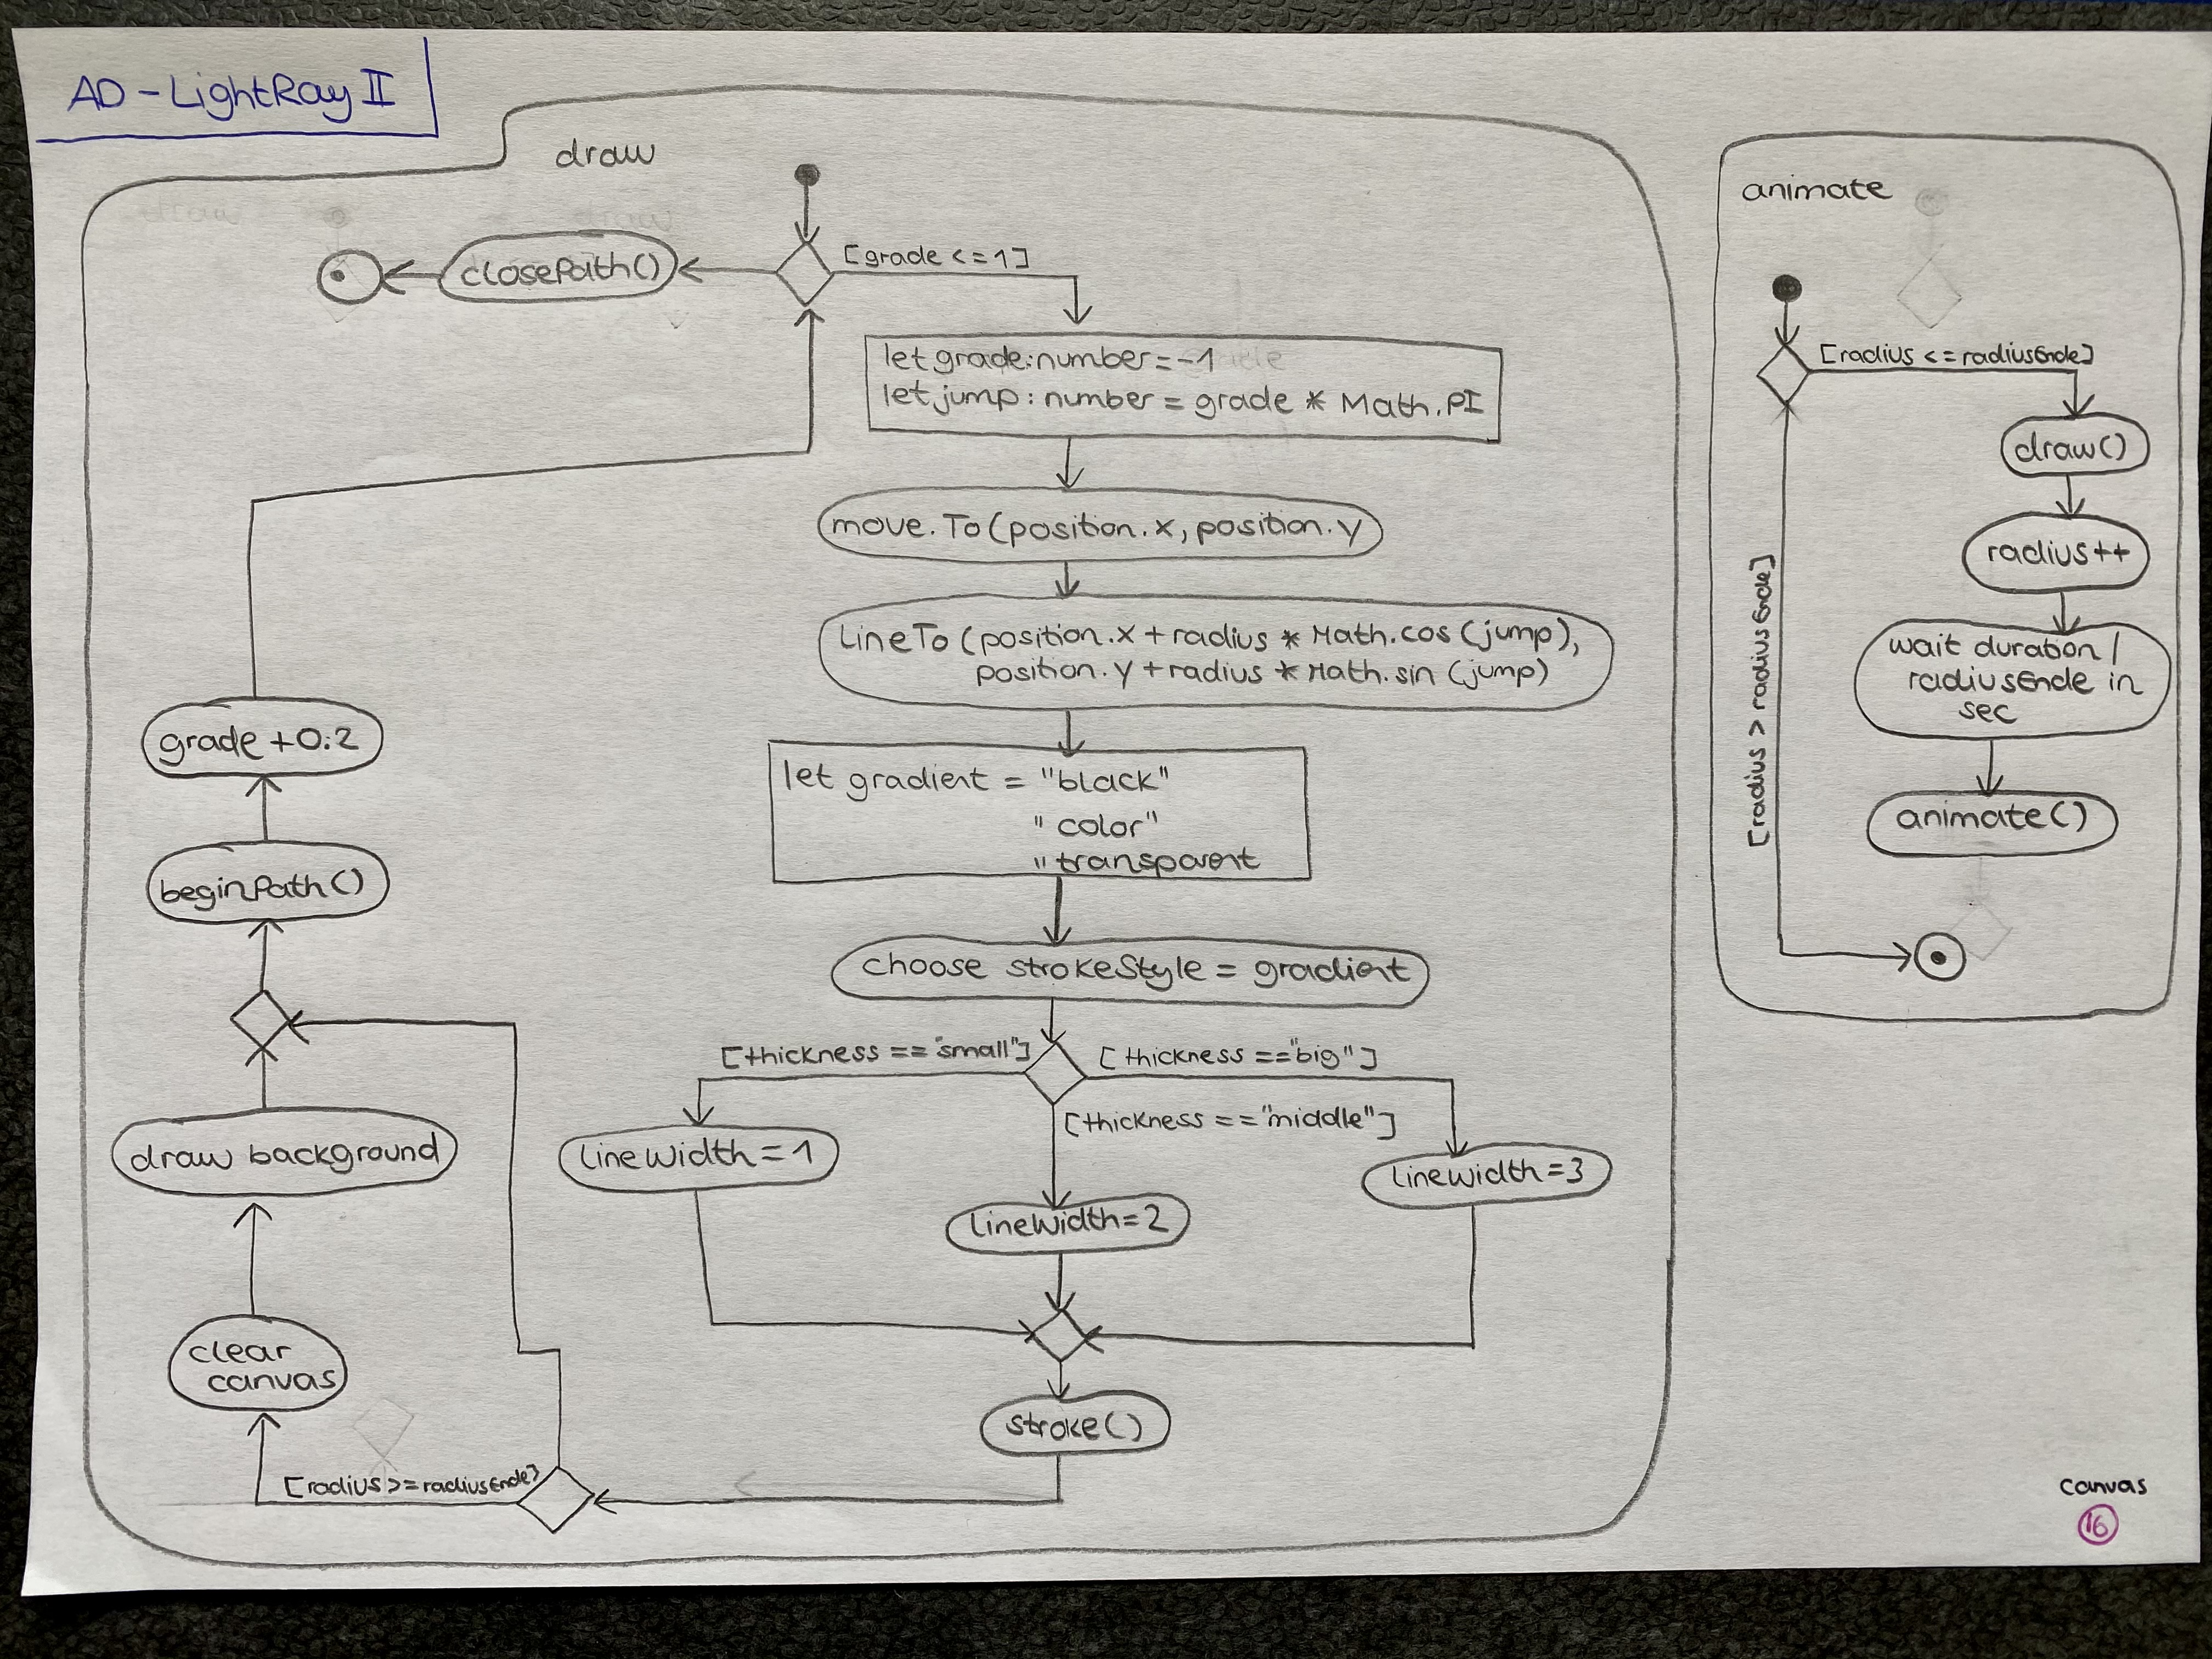 AD - LightRay II
draw
[grade <= 1]
closePath()
let grade: number = -1
let jump: number = grade * Math.PI
move.To (position.x, position.y
LineTo (position.x + radius * Math.cos (jump),
position.y + radius * Math.sin (jump)
let gradient = "black"
" color"
" transparent
choose strokeStyle = gradient
[thickness == "small"]
[thickness == "big"]
[thickness == "middle"]
lineWidth = 1
lineWidth = 2
lineWidth = 3
stroke()
[radius >= radiusEnde]
clear
canvas
draw background
beginPath()
grade + 0.2
animate
[radius <= radiusEnde]
draw()
radius++
wait duration /
radiusEnde in
sec
animate()
[radius > radiusEnde]
canvas
16